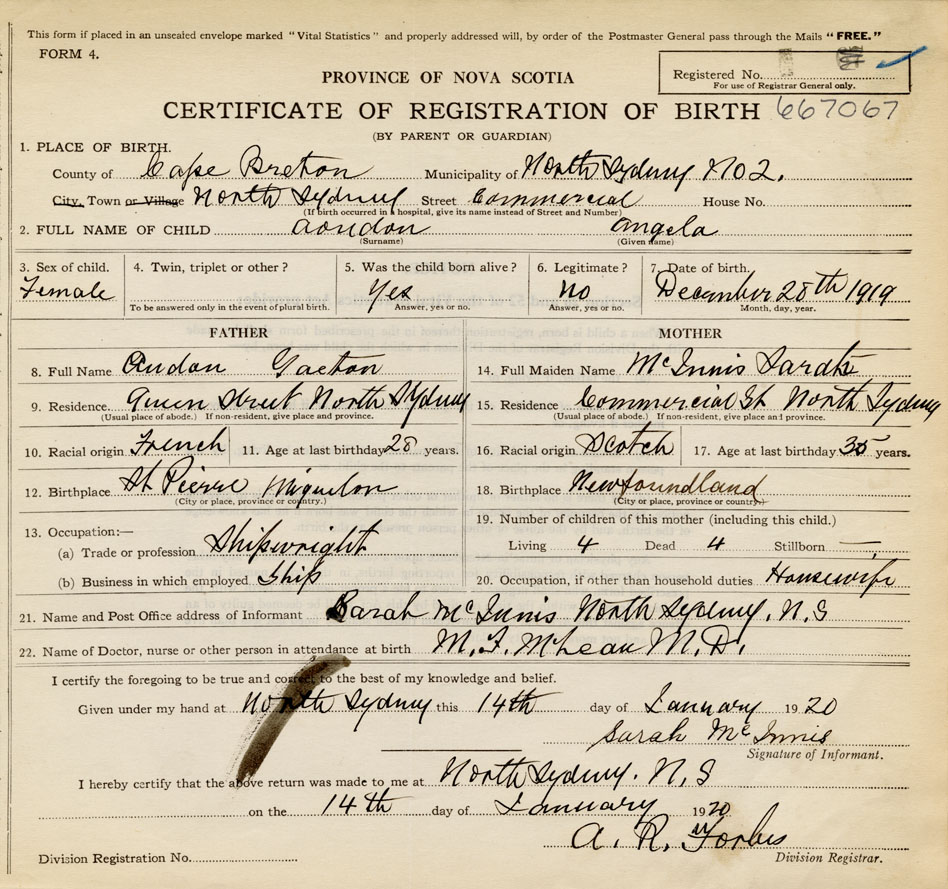 This form if placed in an unsealed envelope marked "Vital Statistics" and properly addressed will, by order of the Postmaster General pass through the Mails "FREE."
FORM 4.
Registered No.
For use of Registrar General only.
PROVINCE OF NOVA SCOTIA
CERTIFICATE OF REGISTRATION OF BIRTH 667067
(BY PARENT OR GUARDIAN)
1. PLACE OF BIRTH.
County of Cape Breton Municipality of North Sydney No 2.
City, Town or Village North Sydney Street Commercial House No.
(If birth occurred in a hospital, give its name instead of Street and Number)
2. FULL NAME OF CHILD Aoudon Angela
(Surname) (Given name)
3. Sex of child. 4. Twin, triplet or other? 5. Was the child born alive? 6. Legitimate? 7. Date of birth.
Female Yes No December 28th 1919
To be answered only in the event of plural birth. Answer, yes or no. Answer, yes or no. Month, day, year.
FATHER MOTHER
8. Full Name Audon Gaeton 14. Full Maiden Name McInnis
9. Residence. Queen Street North Sydney 15. Residence Commercial St North Sydney
(Usual place of abode.) If non-resident, give place and province. (Usual place of abode.) If non-resident, give place and province.
10. Racial origin French 11. Age at last birthday 28 years. 16. Racial origin Scotch 17. Age at last birthday 35 years.
12. Birthplace St Pierre Miquelon 18. Birthplace Newfoundland
(City or place, province or country.) (City or place, province or country.)
13. Occupation:— 19. Number of children of this mother (including this child.)
(a) Trade or profession Shipwright Living 4 Dead 4 Stillborn —
(b) Business in which employed Ship 20. Occupation, if other than household duties Housewife
21. Name and Post Office address of Informant Sarah McInnis North Sydney. N.S
22. Name of Doctor, nurse or other person in attendance at birth M. F. McLean M.D.
I certify the foregoing to be true and correct to the best of my knowledge and belief.
Given under my hand at North Sydney this 14th day of January 1920
Sarah McInnis
Signature of Informant.
I hereby certify that the above return was made to me at North Sydney. N,S
on the 14th day of January 1920
A. R. Forbes
Division Registration No. Division Registrar.